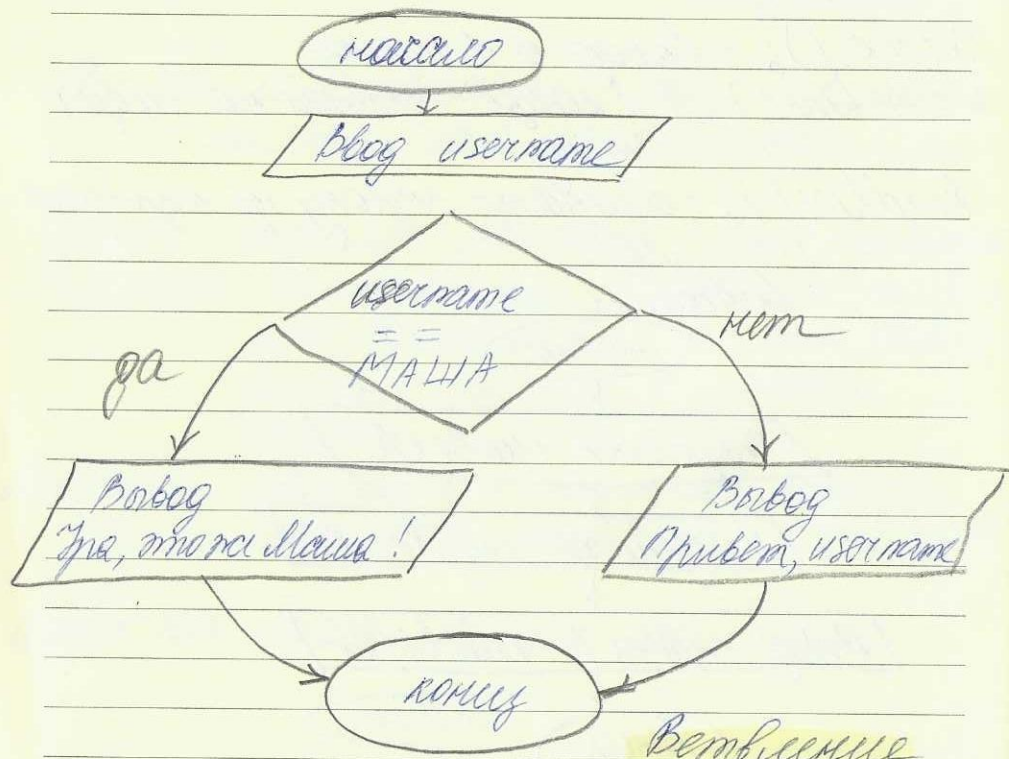 начало
Ввод username
username
==
МАША
да
нет
Вывод
Ура, это же Маша!
Вывод
Привет, username
конец
Ветвление